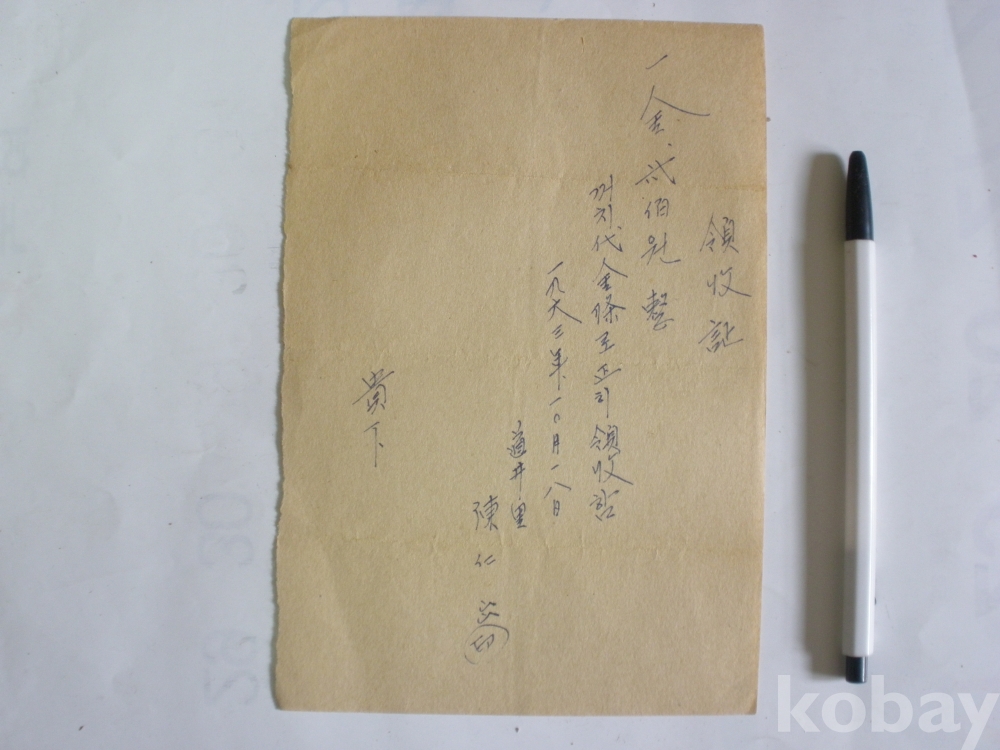 領收証
一金. 弐佰원整
꺼치代金條로 正히 領收함
一九六三年 一〇月 一八日
道井里
陳仁
印
貴下
kobay